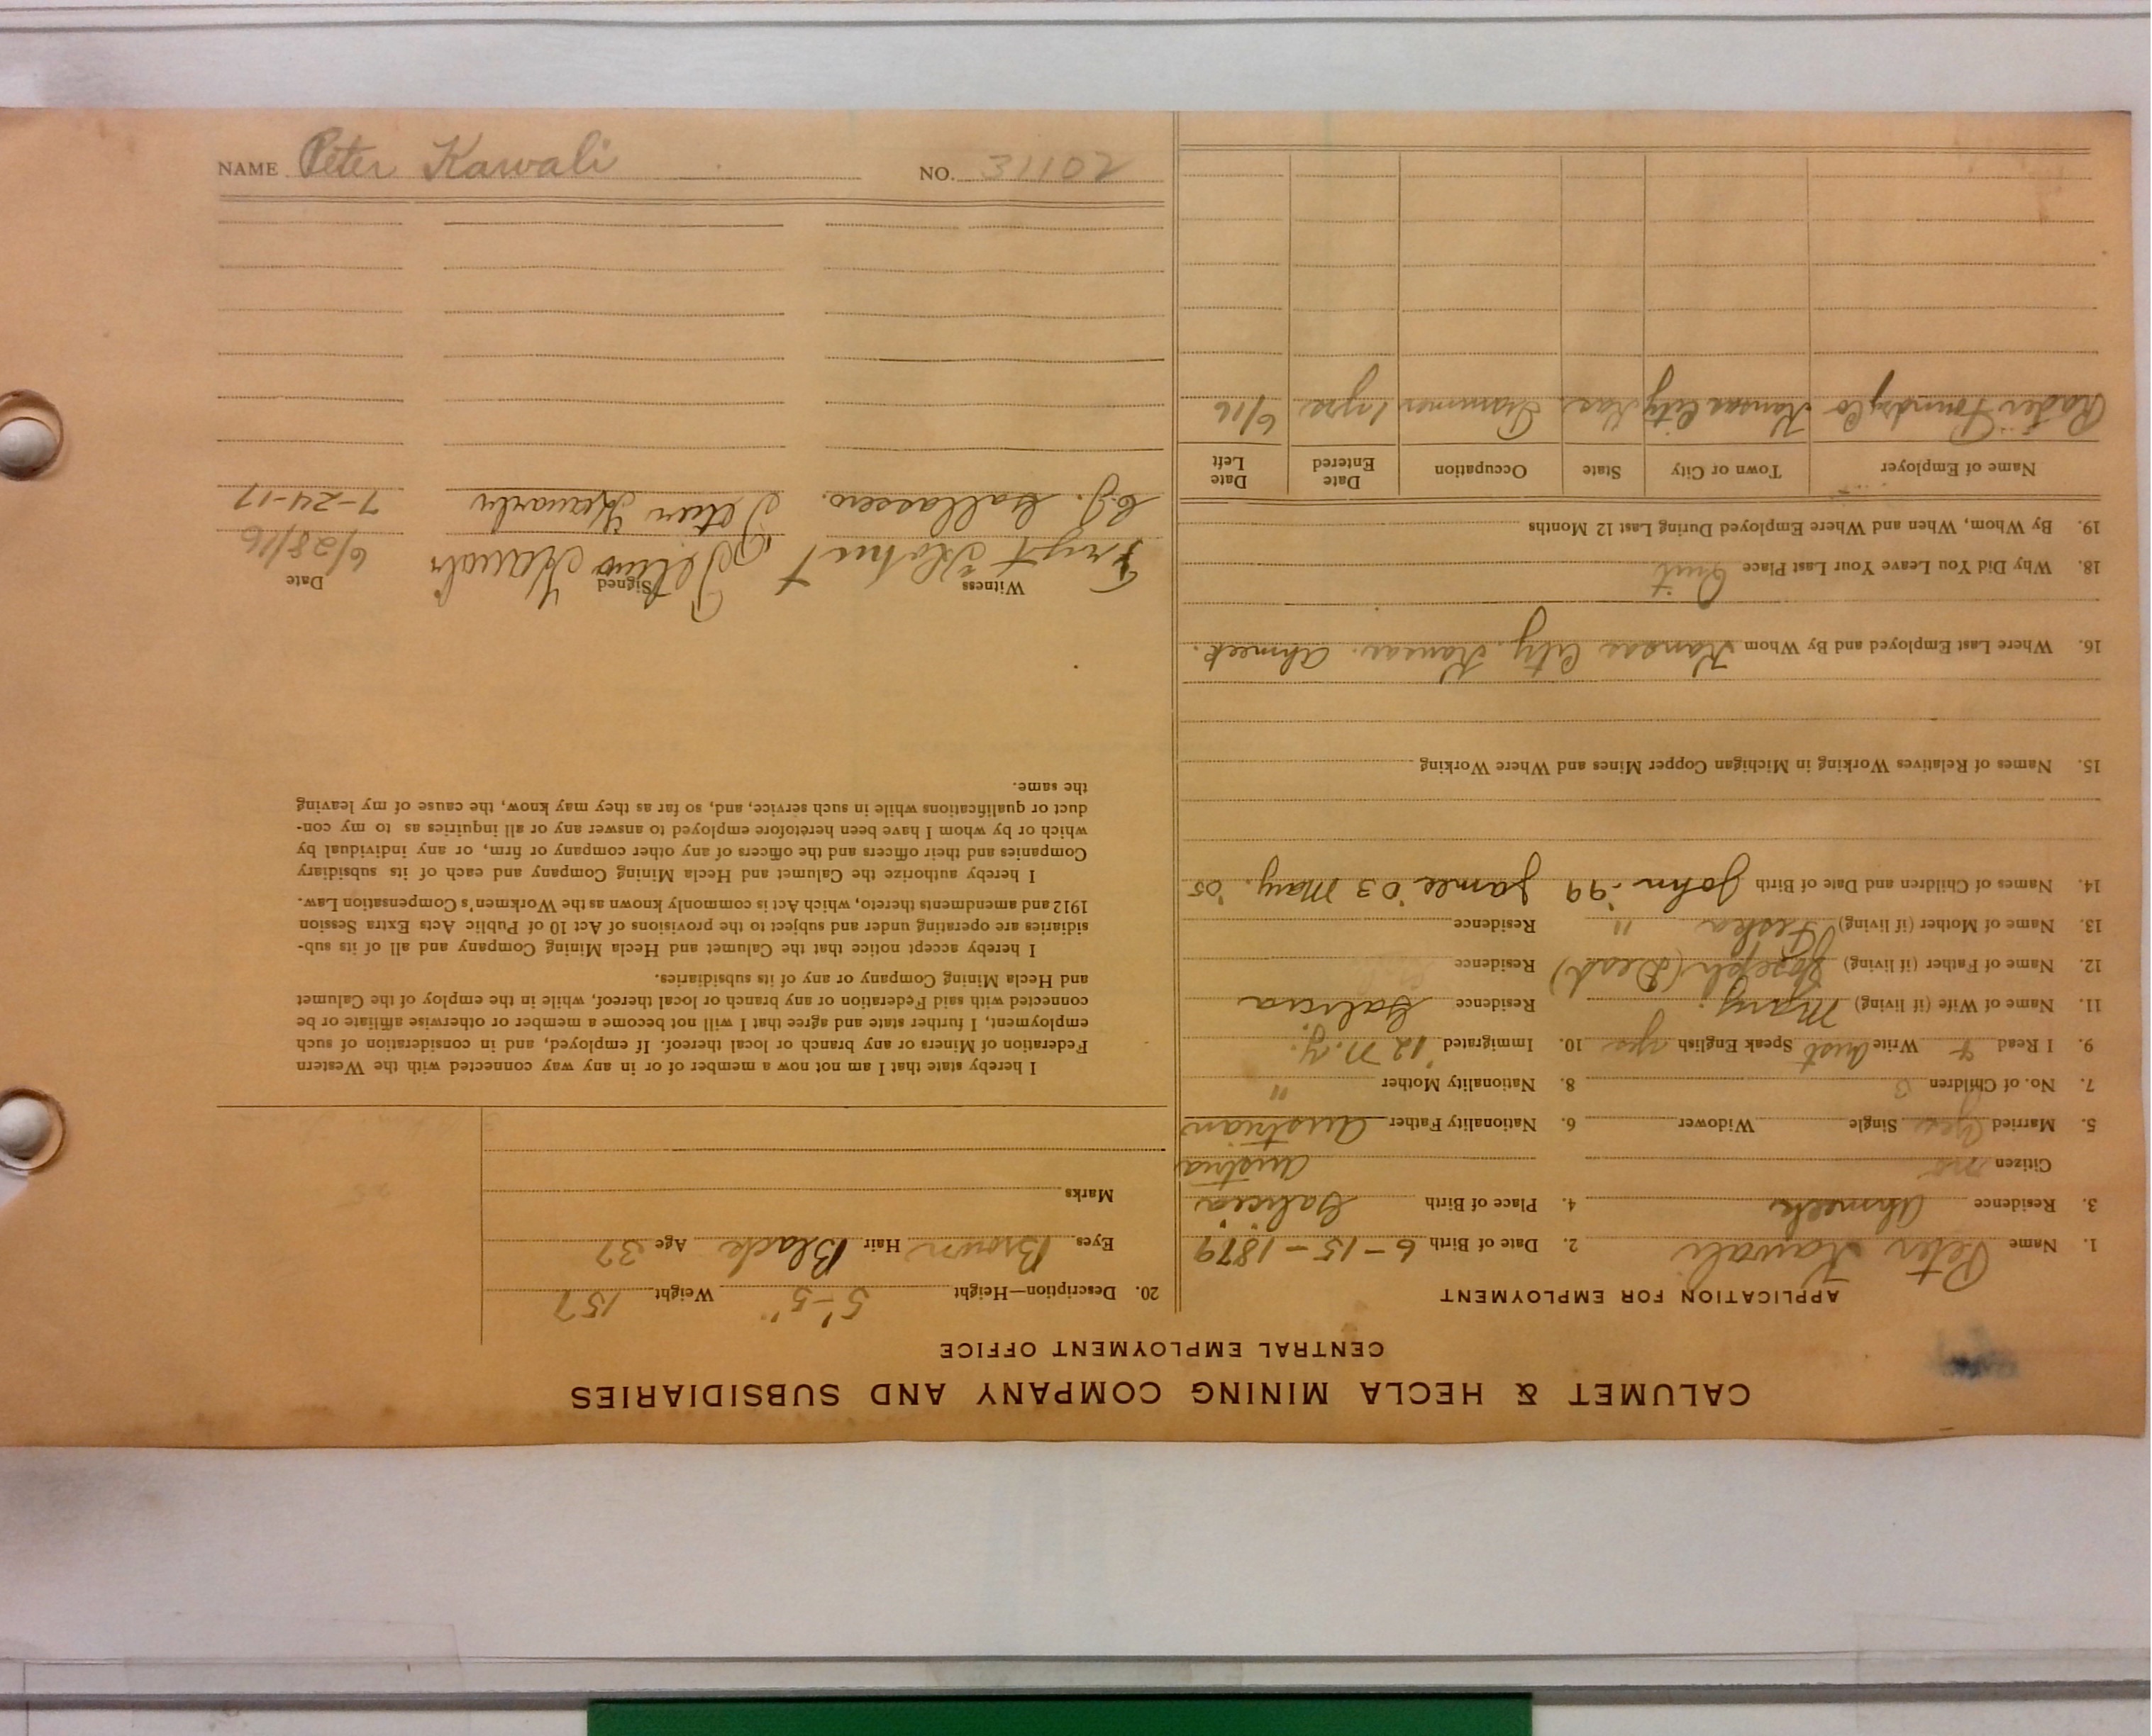 CALUMET & HECLA MINING COMPANY AND SUBSIDIARIES
CENTRAL EMPLOYMENT OFFICE
APPLICATION FOR EMPLOYMENT
1. Name Peter Kawali 2. Date of Birth 6-15-1879
3. Residence Ahmeek 4. Place of Birth Galicia
Citizen no Austria
5. Married yes Single Widower 6. Nationality Father Austrian
7. No. of Children 3 8. Nationality Mother "
9. I Read & Write Aust Speak English yes 10. Immigrated '12 N.Y.
11. Name of Wife (if living) Mary. Residence Galicia
12. Name of Father (if living) Joseph (Dead) Residence
13. Name of Mother (if living) " Residence
14. Names of Children and Date of Birth John-'99 James '03 Mary. '05
15. Names of Relatives Working in Michigan Copper Mines and Where Working
16. Where Last Employed and By Whom Kansas City, Kansas. Ahmeek.
18. Why Did You Leave Your Last Place Quit
19. By Whom, When and Where Employed During Last 12 Months
Name of Employer Town or City State Occupation Date Entered Date Left
Foundry Co Kansas City Kas. 1 yr 6/16
20. Description—Height 5'-5" Weight 157
Eyes Brown Hair Black Age 37
Marks
I hereby state that I am not now a member of or in any way connected with the Western
Federation of Miners or any branch or local thereof. If employed, and in consideration of such
employment, I further state and agree that I will not become a member or otherwise affiliate or be
connected with said Federation or any branch or local thereof, while in the employ of the Calumet
and Hecla Mining Company or any of its subsidiaries.
I hereby accept notice that the Calumet and Hecla Mining Company and all of its sub-
sidiaries are operating under and subject to the provisions of Act 10 of Public Acts Extra Session
1912 and amendments thereto, which Act is commonly known as the Workmen's Compensation Law.
I hereby authorize the Calumet and Hecla Mining Company and each of its subsidiary
Companies and their officers and the officers of any other company or firm, or any individual by
which or by whom I have been heretofore employed to answer any or all inquiries as to my con-
duct or qualifications while in such service, and, so far as they may know, the cause of my leaving
the same.
Witness Signed Date
6/28/16
C.J. 7-24-17
NAME Peter Kawali NO. 31102